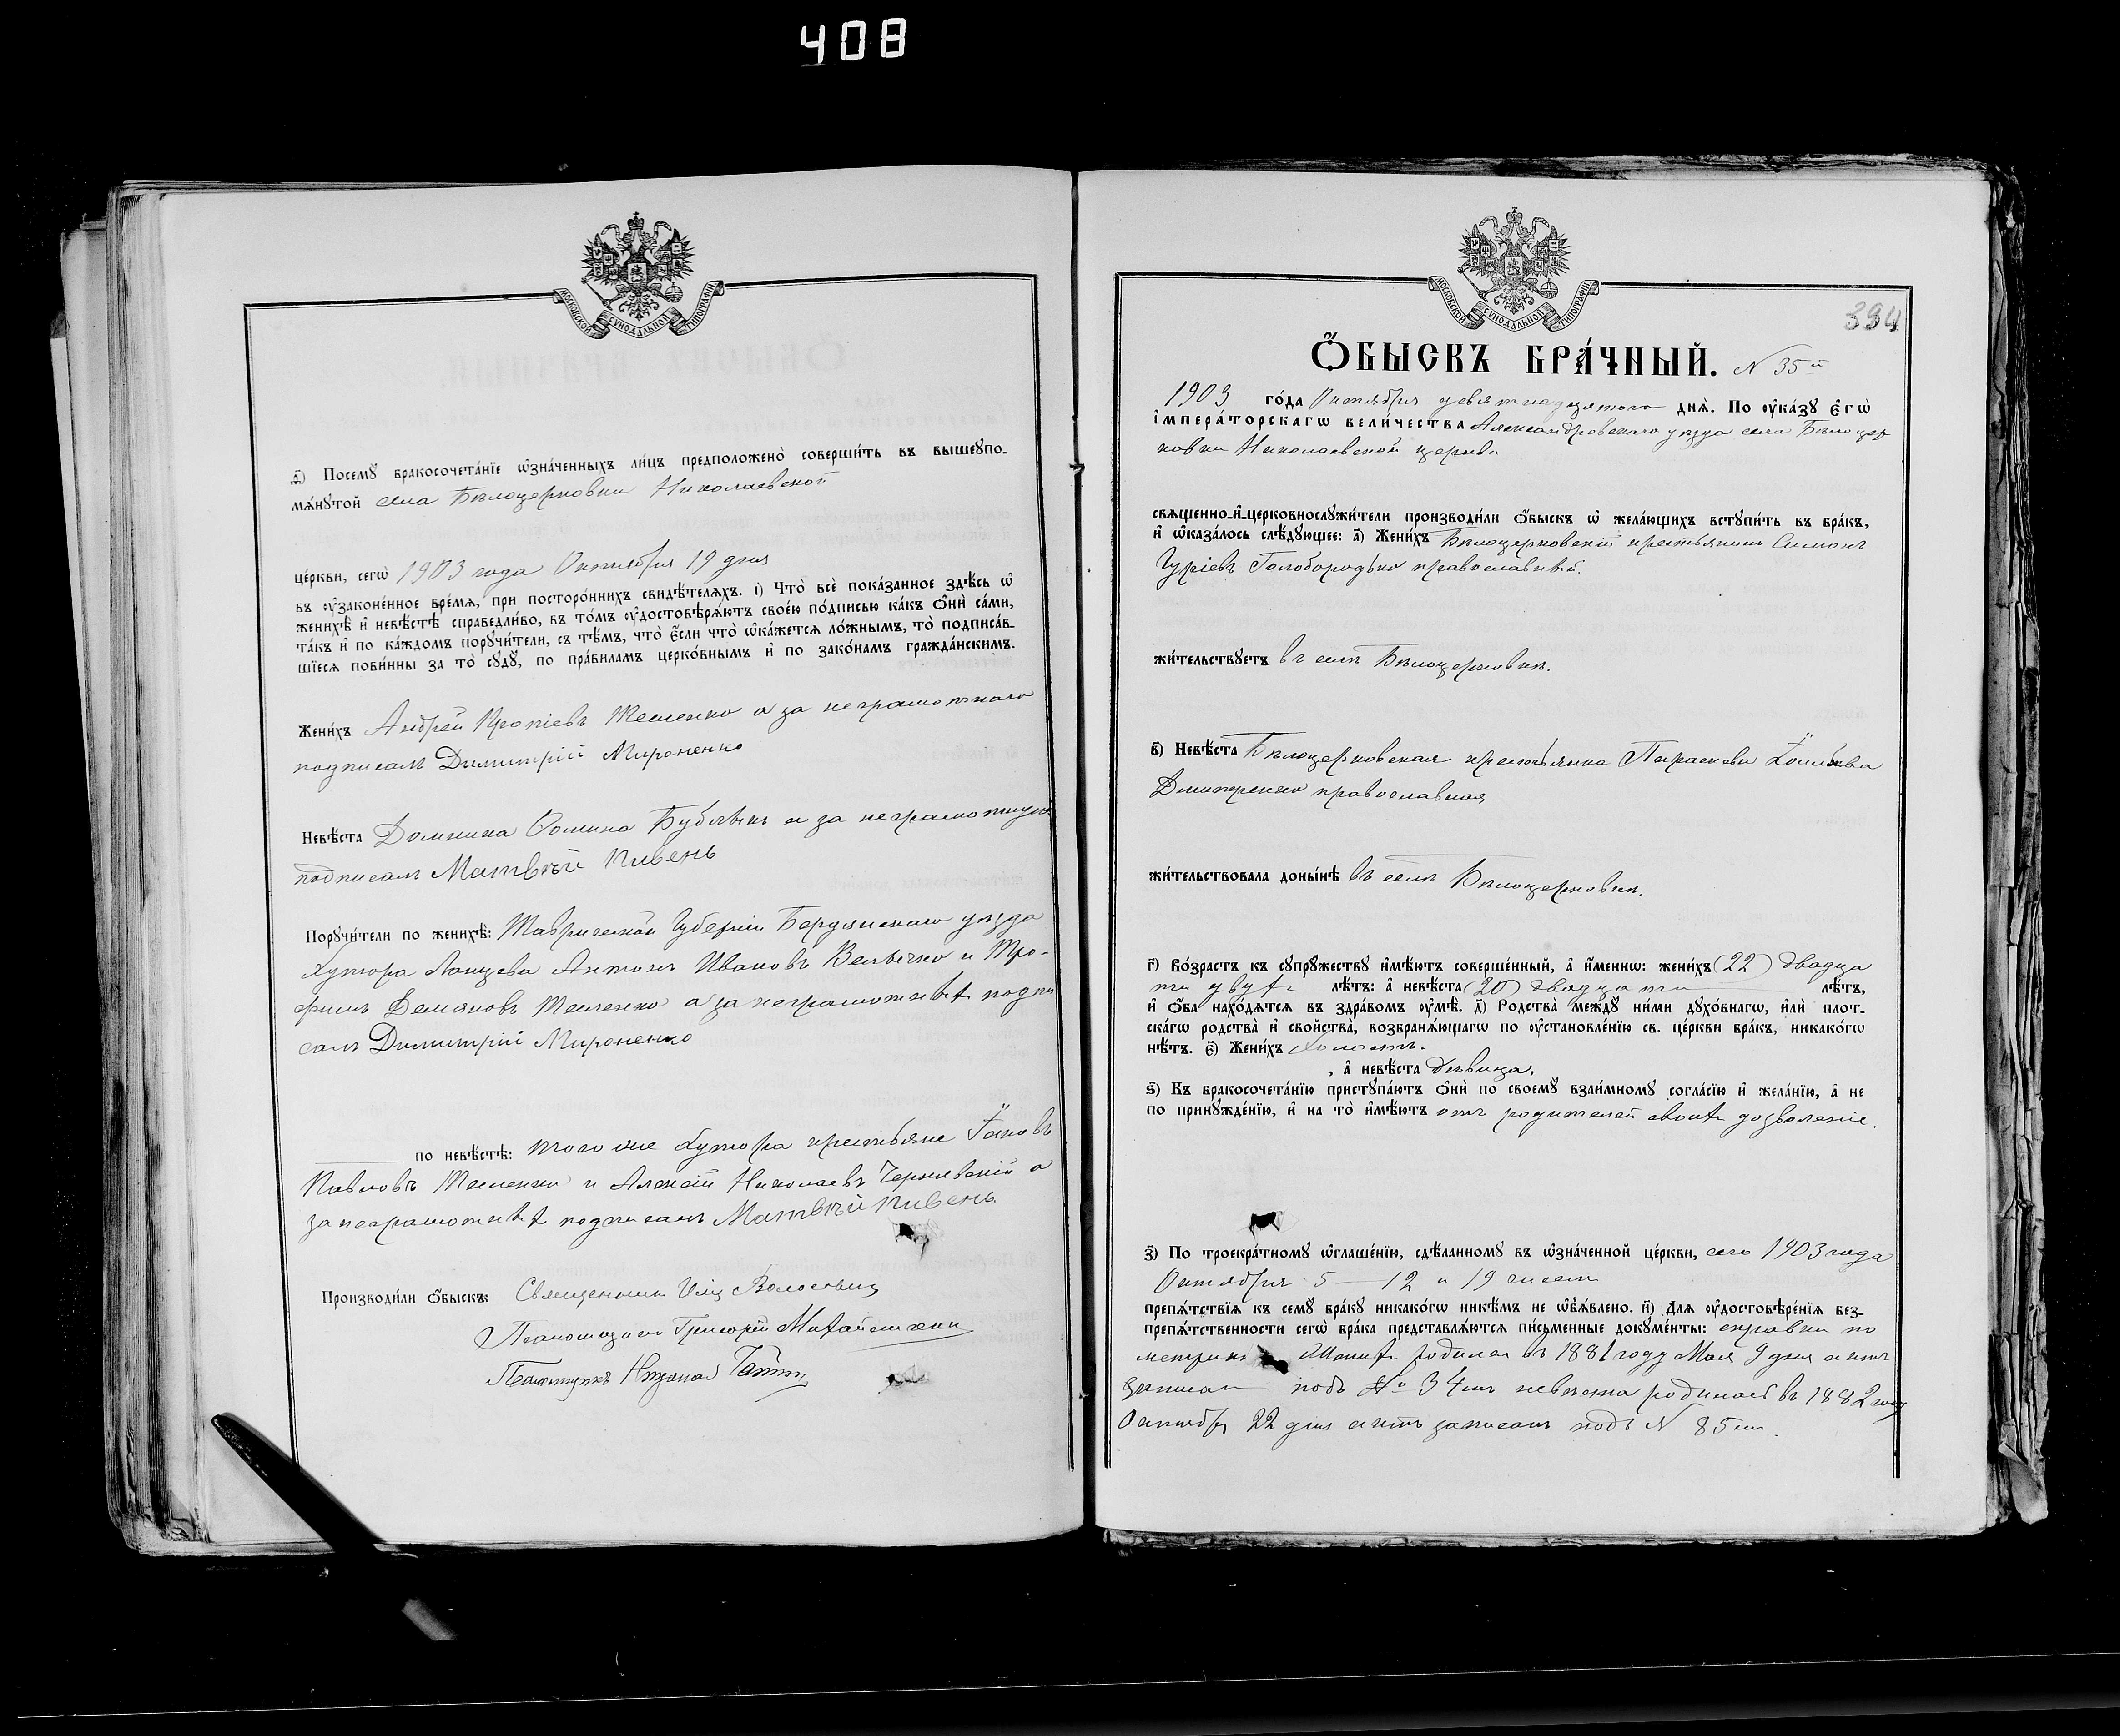 408
МОСКОВСКОЙ СУНОДАЛЬНОЙ ТИПОГРАФІИ
а҃і) Посемꙋ̀ бракосочета́нїе ѡ҆зна́ченныхъ ли́цъ предположенò соверши́ть въ вышеупо-
мѧ́нутой села Бѣлоцерковки Николаевской
це́ркви, сегѡ̀ 1903 года Октября 19 дня
въ ᲂу҆зако́нѐнное вре́мѧ, при посторо́ннихъ свидѣ́телѧхъ. і) Что̀ всѐ пока́занное здѣ́сь ѡ҆
женихѣ̀ и҆ невѣ́стѣ справедли́во, въ то́мъ ᲂу҆достовѣрѧ́ютъ свое́ю по́дписью ка́къ ѻ҆нѝ са́ми,
та́къ и҆ по ка́ждомъ поручи́тели, съ тѣ́мъ, что̀ є҆́сли что̀ ѡ҆ка́жетсѧ ло́жнымъ, то̀ подписа́в-
шїесѧ пови́нны за то̀ сꙋдꙋ̀, по пра́виламъ церко́внымъ и҆ по зако́намъ гражда́нскимъ.
Жени́хъ Андрей Теменко а за неграмотнаго
подписалъ Димитрій Мироненко
Невѣ́ста Домника Фомина а за неграмотную
подписалъ Матвѣй Пивень
Порꙋчи́тели по женихѣ̀: Таврической Губерніи Бердянскаго уѣзда
Хутора Антонъ Ивановъ Величко и Тро-
фимъ Демяновъ Теменко а за неграмотныхъ подпи
салъ Димитрій Мироненко
по невѣ́стѣ: того же Хутора крестьяне Іаковъ
Павловъ Теменко и Алексій Николаевъ Чернявскій а
за неграмотныхъ подписалъ Матвѣй Пивень
Производи́ли ѻ҆́быскъ: Священникъ
Псаломщикъ Григорій
394
Ѻ҆́БЫСКЪ БРА́ЧНЫЙ. N 35й
1903 го́да Октября девятнадцятого днѧ̀. По ᲂу҆ка́зꙋ Є҆гѡ̀
І҆мпера́торскагѡ вели́чества Александровскаго уѣзда села Бѣлоцер
ковки Николаевской церкви
свѧщенно-и҆-церковнослꙋжи́тели производи́ли ѻ҆́быскъ ѡ҆ жела́ющихъ встꙋпи́ть въ бра́къ,
и҆ ѡ҆каза́лось слѣ́дꙋющее: а҃) Жени́хъ Бѣлоцерковскій крестьянинъ Симонъ
Гуріевъ Голобородько православный.
жи́тельствꙋетъ въ селѣ Бѣлоцерковкѣ.
в҃) Невѣ́ста Бѣлоцерковская крестьянка Параскева
Дмитренко православная
жи́тельствовала доны́нѣ въ селѣ Бѣлоцерковкѣ.
г҃) Во́зрастъ къ сꙋпрꙋ́жествꙋ и҆мѣ́ютъ соверше́нный, а҆ и҆́меннѡ: жени́хъ (22) двадца
ти двухъ лѣ́тъ: а҆ невѣ́ста (20) двадцати лѣ́тъ,
и҆ ѻ҆́ба нахо́дѧтсѧ въ здра́вомъ ᲂу҆мѣ̀. д҃) Родства̀ междꙋ̀ ни́ми дꙋхо́внагѡ, и҆лѝ плот-
ска́гѡ родства̀ и҆ сво́йства, возбранѧ́ющагѡ по ᲂу҆становле́нїю св. це́ркви бра́къ, никако́гѡ
нѣ́тъ. є҃) Жени́хъ Холостъ.
, а҆ невѣ́ста Дѣвица,
ѕ҃) Къ бракосочета́нїю пристꙋпа́ютъ ѻ҆нѝ по своемꙋ̀ взаи́мномꙋ согла́сїю и҆ жела́нїю, а҆ не
по принꙋжде́нїю, и҆ на то̀ и҆мѣ́ютъ отъ родителей своихъ дозволеніе.
з҃) По троекра́тномꙋ ѡ҆глаше́нїю, сдѣ́ланномꙋ въ ѡ҆зна́ченной це́ркви, сего 1903 года
Октября 5 — 12 и 19 чиселъ
препѧ́тствїѧ къ семꙋ̀ бра́кꙋ никако́гѡ никѣ́мъ не ѡ҆б̾ѧ́влено. и҃) Для ᲂу҆достовѣре́нїѧ без-
препѧ́тственности сегѡ̀ бра́ка представлѧ́ютсѧ пи́сьменные докꙋме́нты: справки по
метрикѣ Женихъ родился въ 1881 году Мая 9 дня актъ
записанъ подъ № 34мъ невѣста родилась въ 1882 году
Октября 22 дня актъ записанъ подъ N 85мъ.